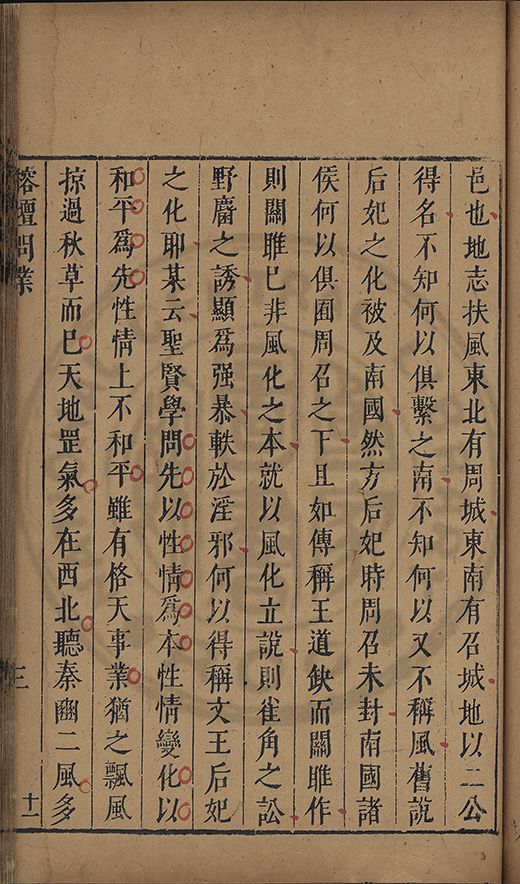 邑也地志扶風東北有周城東南有召城地以二公
得名不知何以俱繫之南不知何以又不稱風舊說
后妃之化被及南國然方后妃時周召未封南國諸
侯何以俱囿周召之下且如傳稱王道缺而關雎作
則關雎已非風化之本就以風化立說則雀角之訟
野麕之誘顯爲强暴軼於淫邪何以得稱文王后妃
之化耶某云聖賢學問先以性情爲本性情變化以
和平爲先性情上不和平雖有格天事業猶之飄風
掠過秋草而巳天地罡氣多在西北聽秦豳二風多
榕壇問業 三 十一